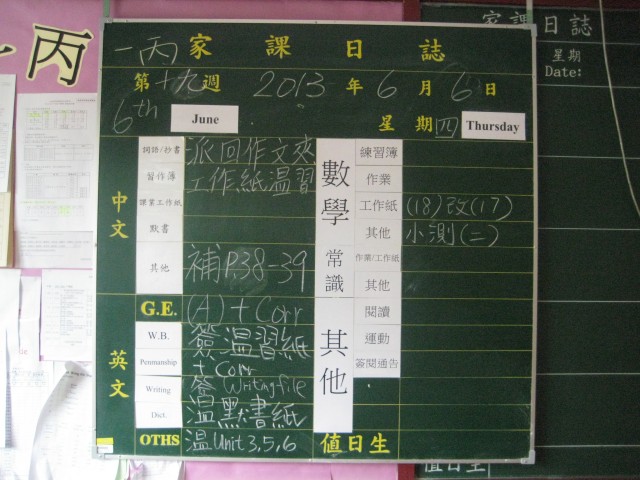 丙
一丙 家課日誌
第十九週 2013年6月6日
6th June 星期四 Thursday
中文
詞語/抄書 派回作文夾
習作簿 工作紙温習
課業工作紙
默書
其他 補P.38-39
G.E. (A)+Corr
英文
W.B. 簽温習紙
Penmanship +Corr
Writing 簽Writing file
Dict 温默書紙
OTHS 温Unit 3,5,6
數學
練習簿
作業
工作紙 (18)改(17)
其他 小測(二)
常識
作業/工作紙
其他
其他
閱讀
運動
簽閱通告
值日生
家課日誌
星期
Date:
值日生